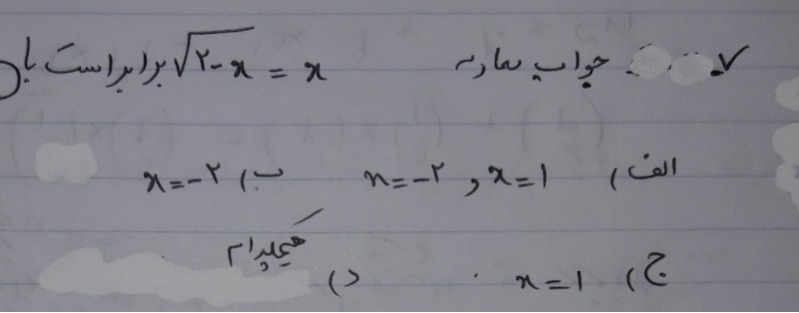 ۷. جواب معادله √۲-x = x برابر است با
الف) x=1 و x=-۲ ب) x=-۲
ج) x=1 د) هیچکدام